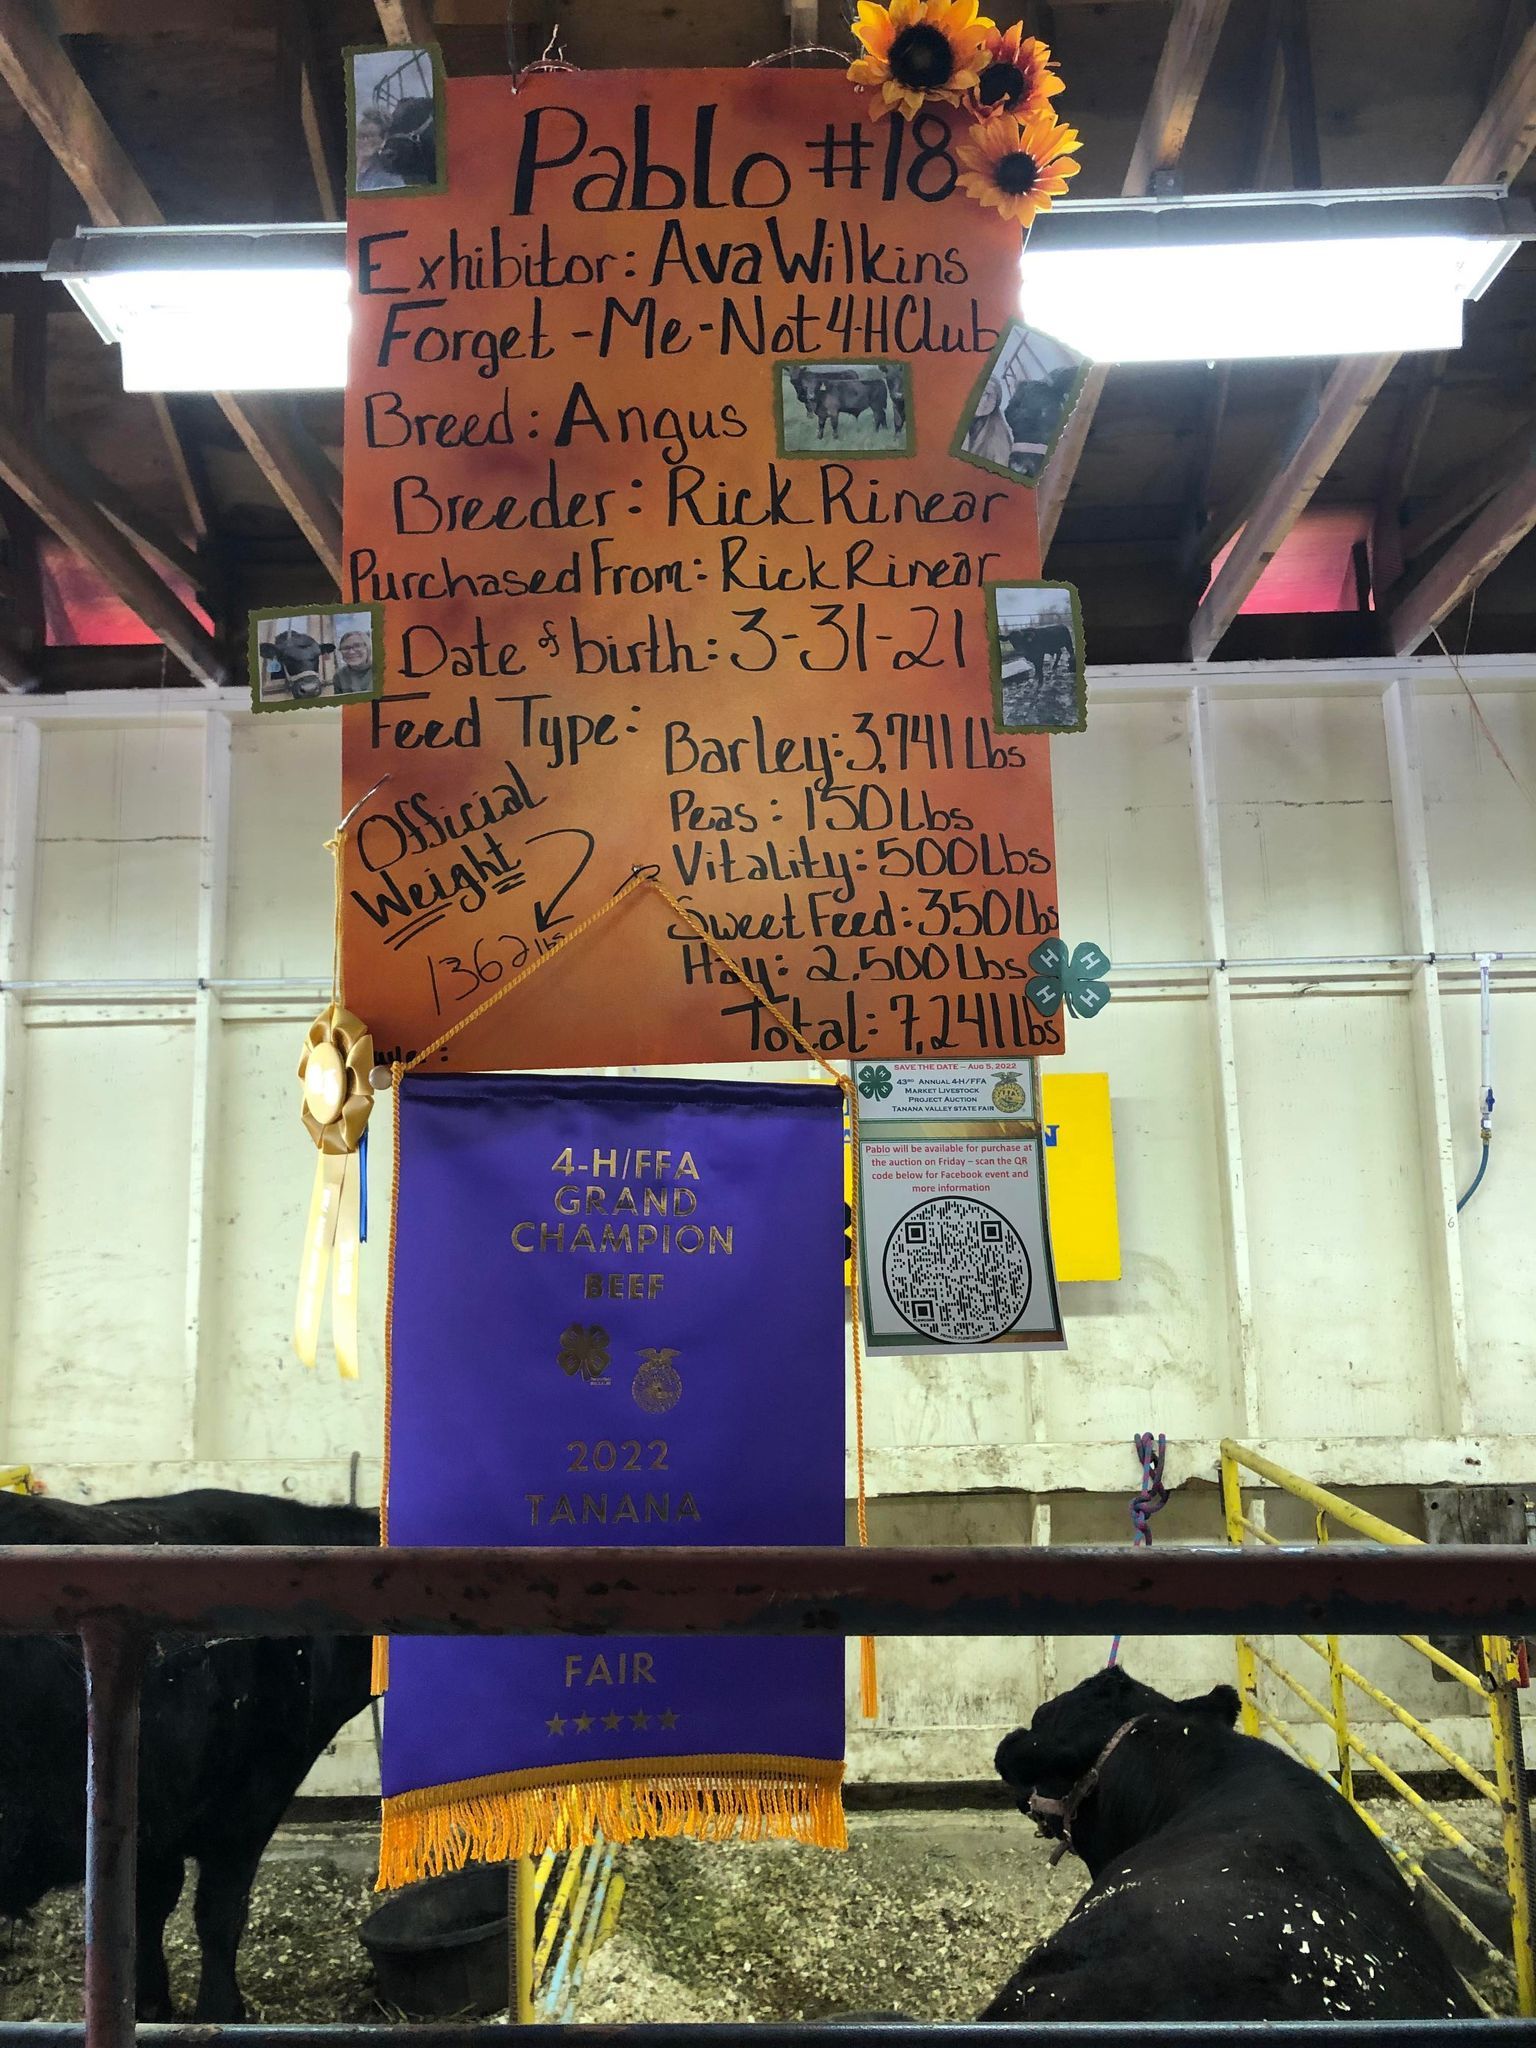 Pablo #18
Exhibitor: Ava Wilkins
Forget-Me-Not 4-H Club
Breed: Angus
Breeder: Rick Rinear
Purchased From: Rick Rinear
Date of birth: 3-31-21
Feed Type:
Barley: 3,741 Lbs
Peas: 150 Lbs
Vitality: 500 Lbs
Sweet Feed: 350 lbs
Hay: 2,500 Lbs
Total: 7,241 lbs
Official
Weight
1362 lbs
H H
H H
SAVE THE DATE – AUG 5, 2022
43RD ANNUAL 4-H/FFA
MARKET LIVESTOCK
PROJECT AUCTION
TANANA VALLEY STATE FAIR
Pablo will be available for purchase at
the auction on Friday – scan the QR
code below for Facebook event and
more information
4-H/FFA
GRAND
CHAMPION
BEEF
2022
TANANA
FAIR